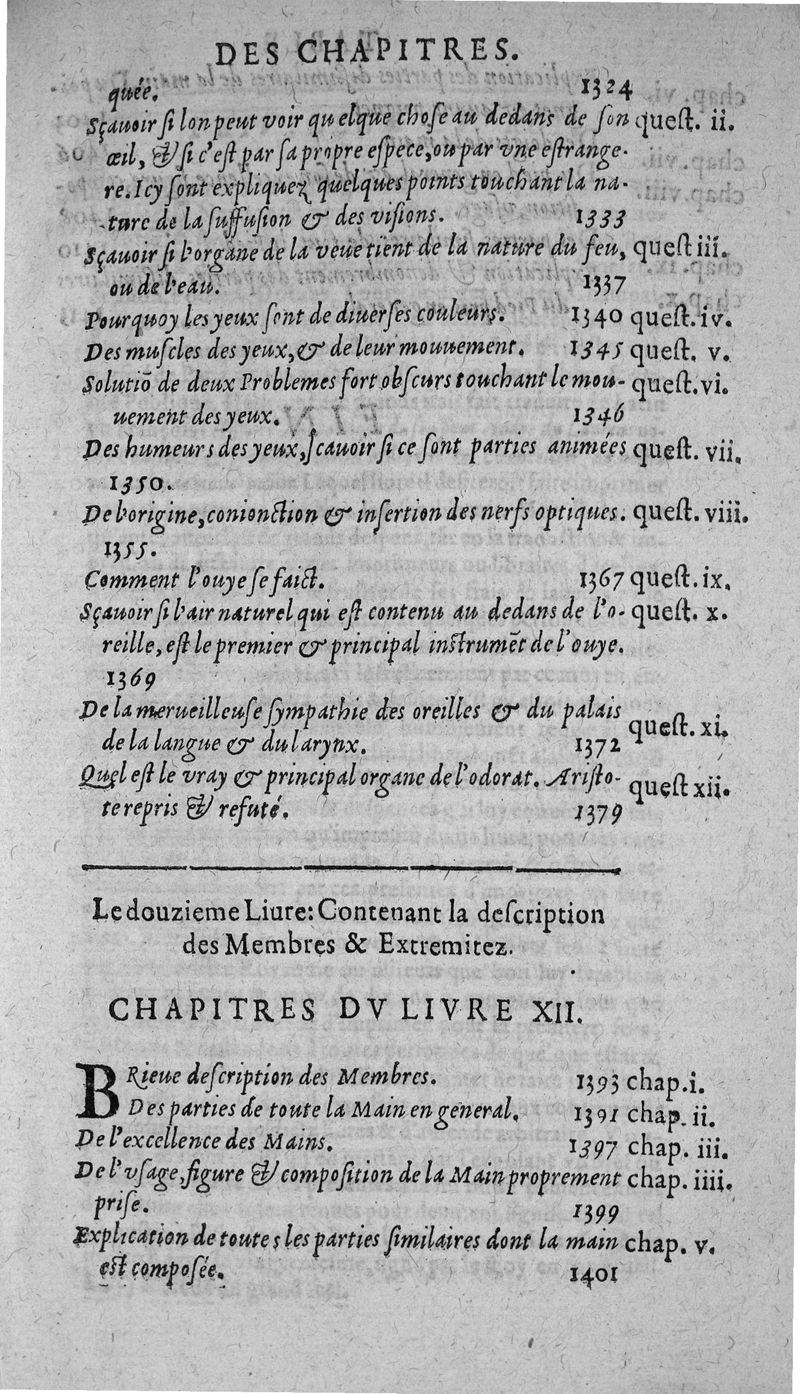 DES CHAPITRES.
quée. 1324
Sçauoir ſi lon peut voir quelque choſe au dedans de ſon queſt. ii.
œil, & ſi c'eſt par ſa propre eſpece, ou par vne eſtrange-
re. Icy ſont expliquez quelques points touchant la na-
ture de la ſuffuſion & des viſions. 1333
Sçauoir ſi l'organe de la veue tient de la nature du feu, queſt iii.
ou de l'eau. 1337
Pourquoy les yeux ſont de diuerſes couleurs. 1340 queſt. iv.
Des muſcles des yeux, & de leur mouuement. 1345 queſt. v.
Solutiō de deux Problemes fort obſcurs touchant le mou- queſt. vi.
uement des yeux. 1346
Des humeurs des yeux, ſcauoir ſi ce ſont parties animées queſt. vii.
1350.
De l'origine, conionction & inſertion des nerfs optiques. queſt. viii.
1355.
Comment l'ouye ſe faict. 1367 queſt. ix.
Sçauoir ſi l'air naturel qui eſt contenu au dedans de l'o- queſt. x.
reille, eſt le premier & principal inſtrumēt de l'ouye.
1369
De la merueilleuſe ſympathie des oreilles & du palais
de la langue & du larynx. 1372 queſt. xi.
Quel eſt le vray & principal organe de l'odorat. Ariſto- queſt xii.
te repris & refuté. 1379
Le douzieme Liure: Contenant la deſcription
des Membres & Extremitez.
CHAPITRES DV LIVRE XII.
BRieue deſcription des Membres. 1393 chap. i.
Des parties de toute la Main en general. 1391 chap. ii.
De l'excellence des Mains. 1397 chap. iii.
De l'vſage, figure & compoſition de la Main proprement chap. iiii.
priſe. 1399
Explication de toutes les parties ſimilaires dont la main chap. v.
eſt compoſée. 1401